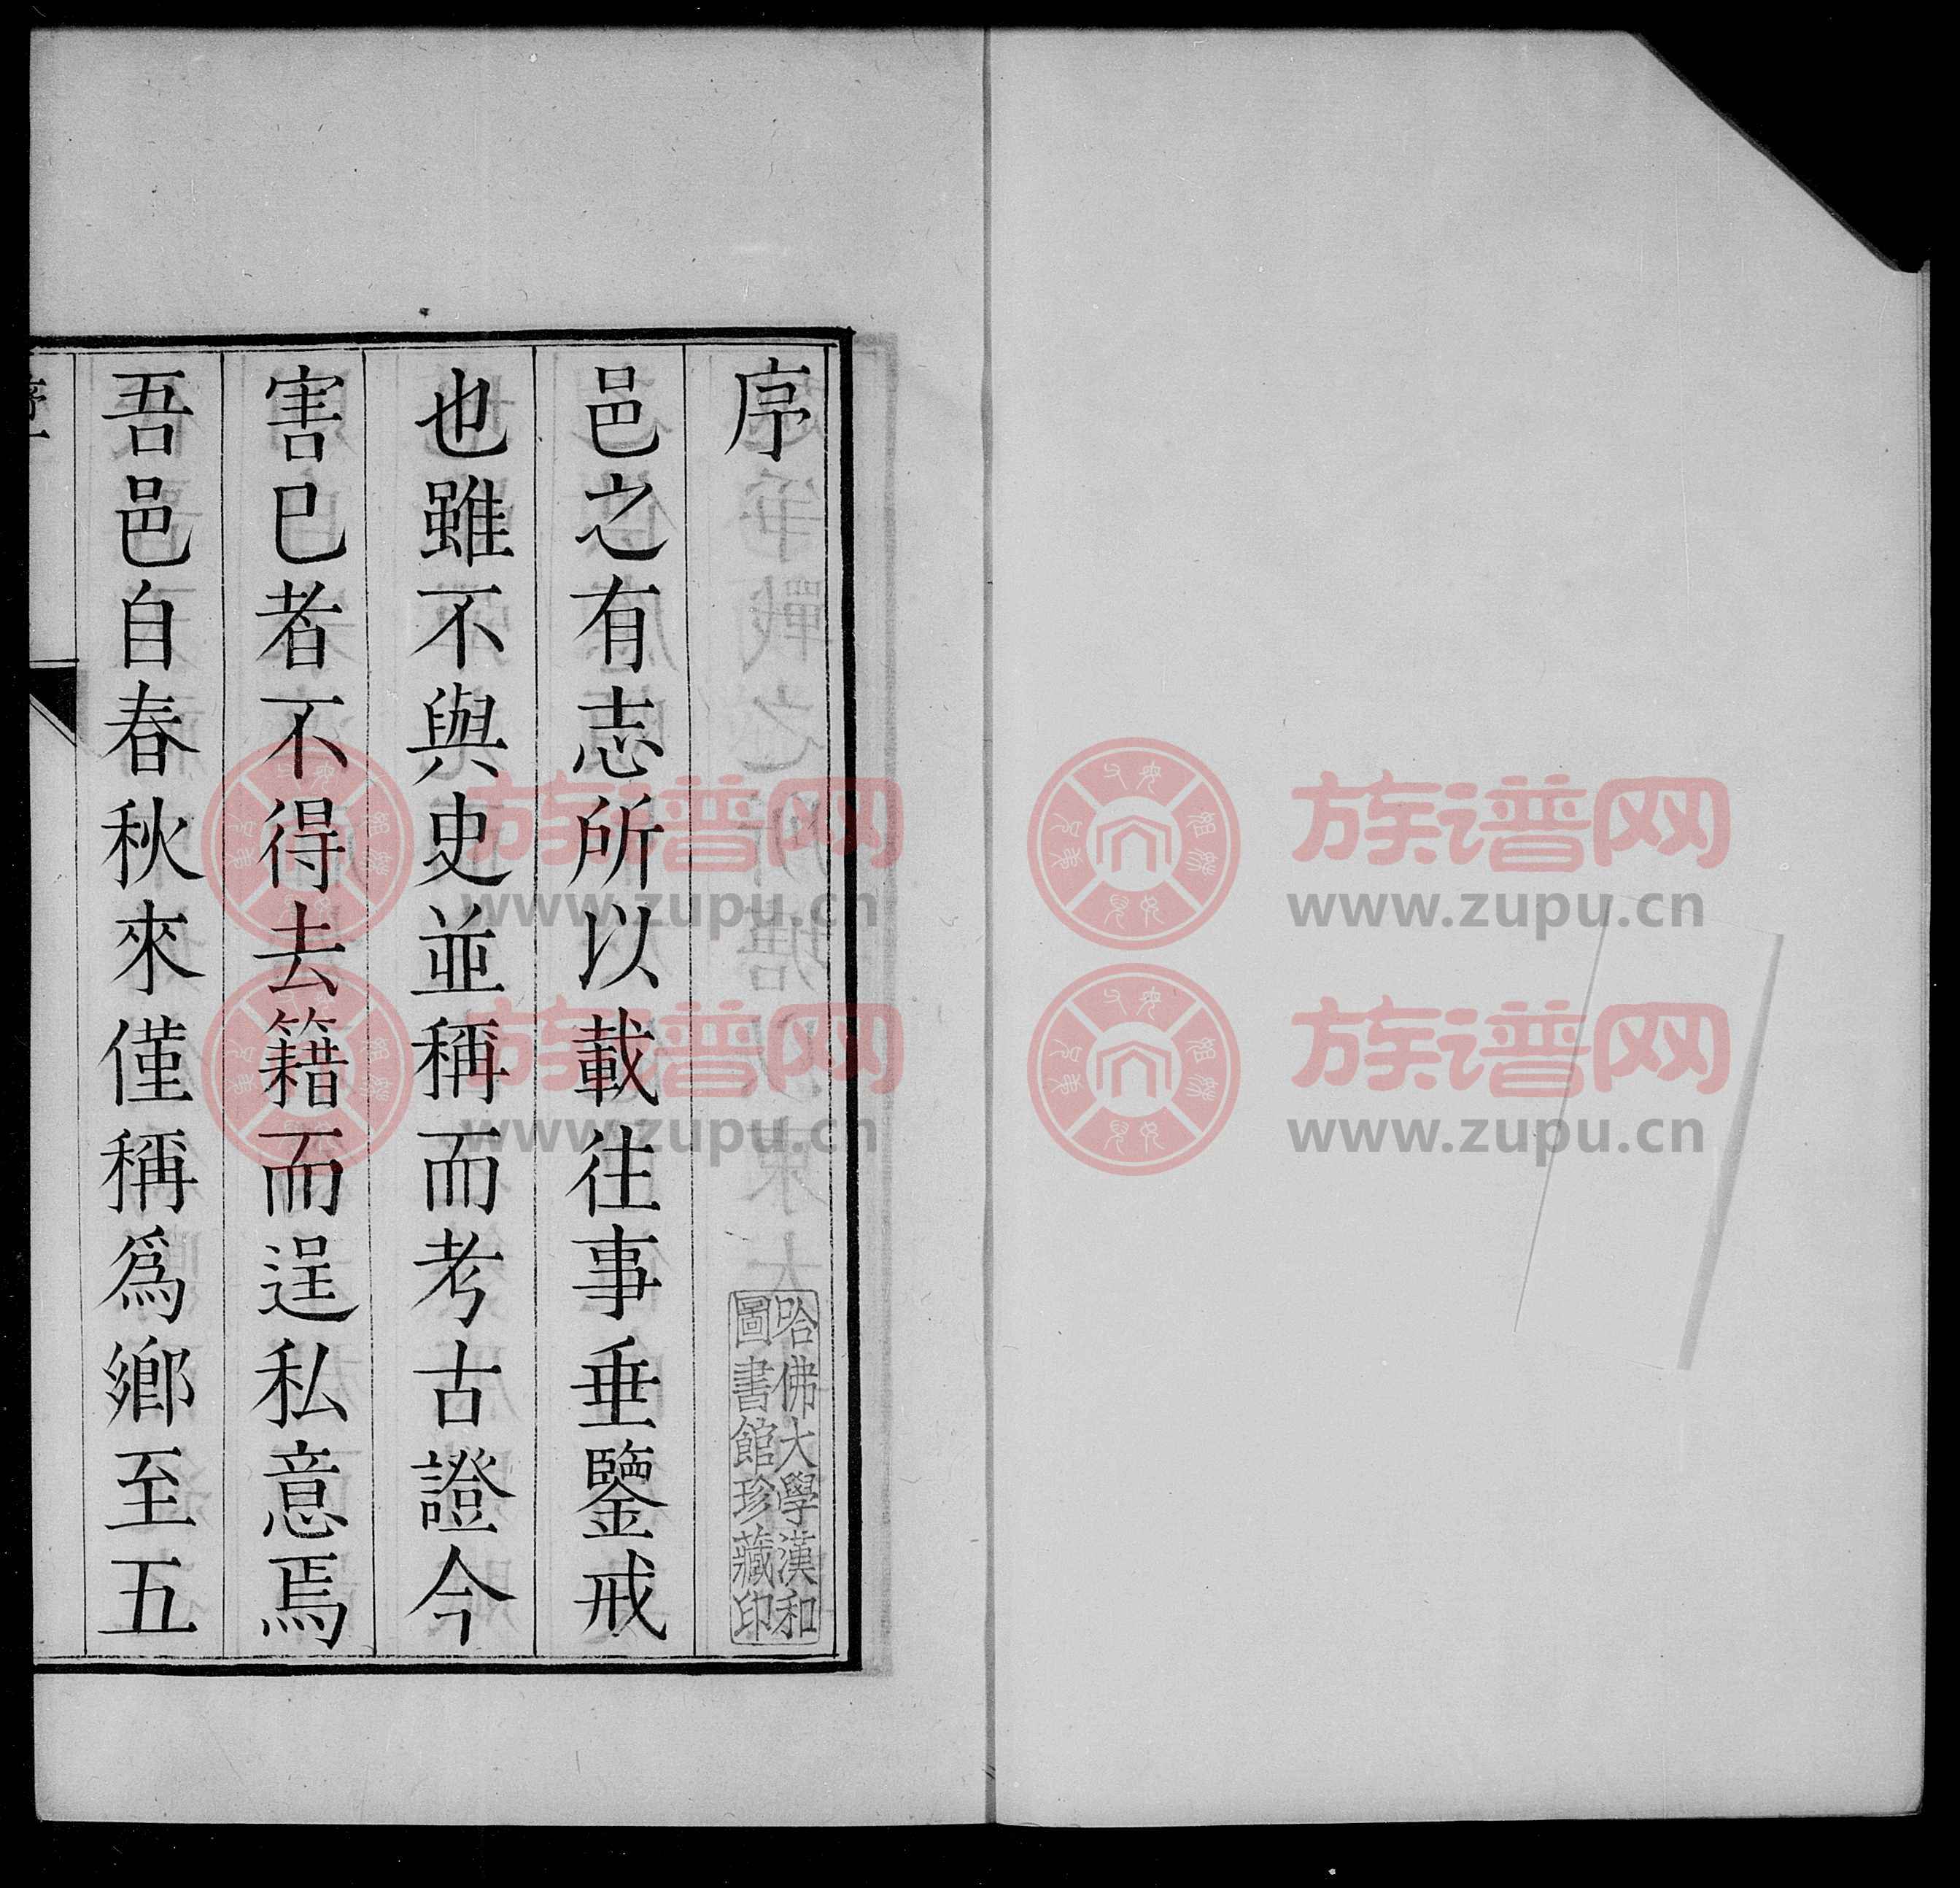 序
邑之有志所以載往事垂鑒戒
也雖不與史並稱而考古證今
害已者不得去籍而逞私意焉
吾邑自春秋來僅稱爲鄉至五
哈佛大學漢和
圖書館珍藏印
族谱网
www.zupu.cn
族谱网
www.zupu.cn
族谱网
www.zupu.cn
族谱网
www.zupu.cn